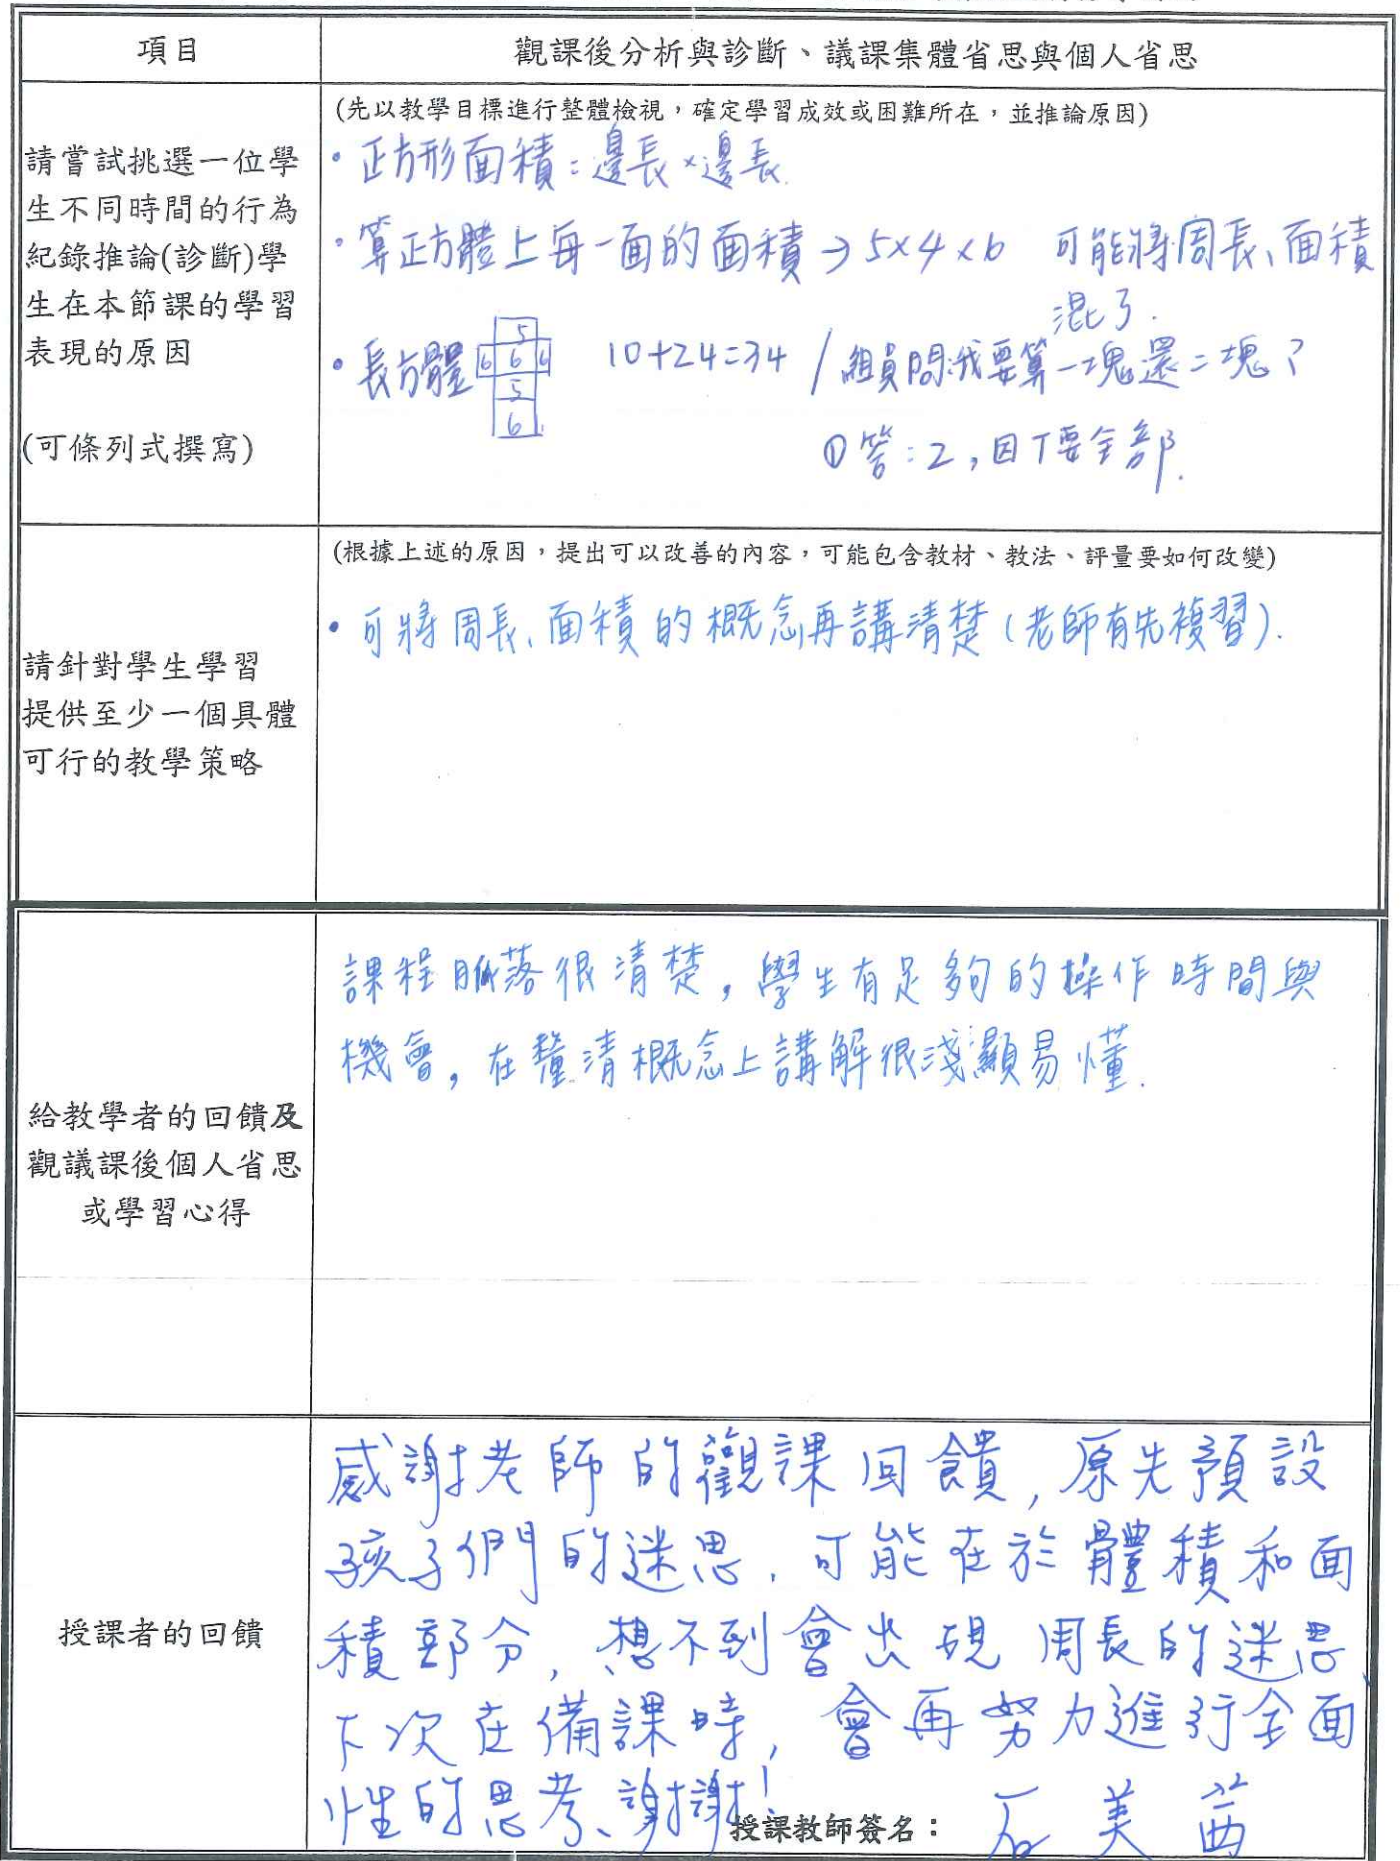 項目
觀課後分析與診斷、議課集體省思與個人省思
請嘗試挑選一位學
生不同時間的行為
紀錄推論(診斷)學
生在本節課的學習
表現的原因
(可條列式撰寫)
(先以教學目標進行整體檢視，確定學習成效或困難所在，並推論原因)
• 正方形面積：邊長×邊長.
• 算正方體上每一面的面積→5×4×6 可能將周長、面積
混了.
• 長方體 10+24=34 / 組員問:我要算一塊還二塊？
5
6 6 6
5
6
①答：2，因T要全部.
請針對學生學習
提供至少一個具體
可行的教學策略
(根據上述的原因，提出可以改善的內容，可能包含教材、教法、評量要如何改變)
• 可將周長、面積的概念再講清楚(老師有先複習).
給教學者的回饋及
觀議課後個人省思
或學習心得
課程脈落很清楚，學生有足夠的操作時間與
機會，在釐清概念上講解很淺顯易懂.
授課者的回饋
感謝老師的觀課回饋，原先預設
孩子們的迷思，可能在於體積和面
積部分，想不到會出現周長的迷思、
下次在備課時，會再努力進行全面
性的思考、謝謝！
授課教師簽名： 石美茜